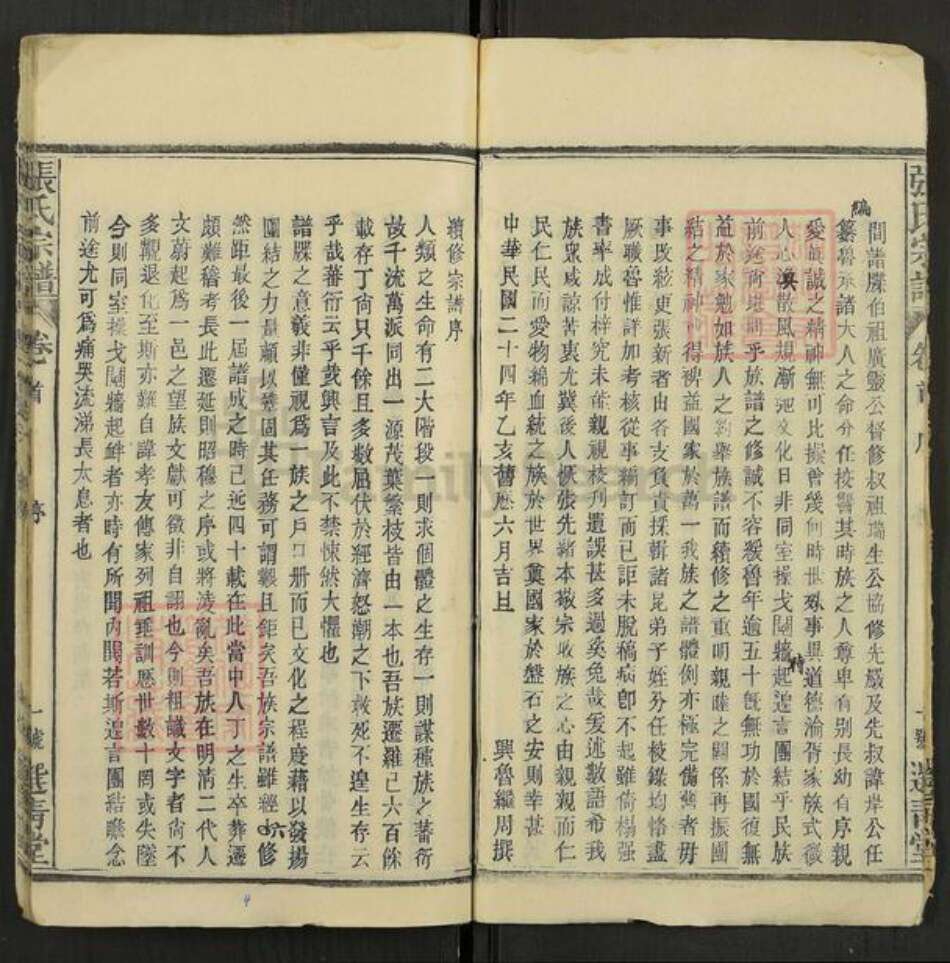 間諸牒伯祖廣颺公督修叔祖瑞生公協修先嚴及先叔諱岸公任
編纂魯承諸大人之命分任校讐其時族之人尊卑有別長幼有序親
愛眞誠之精神無可比擬曾幾何時世殊事異道德淪胥家族式微
人心渙散風規漸弛文化日非同室操戈鬩牆時起遑言團結乎民族
前途尚堪問乎族譜之修誠不容緩魯年逾五十旣無功於國復無
益於家勉如族人之約舉族譜而續修之重明親睦之關係再振團
結之精神或得裨益國家於萬一我族之譜體例亦極完備與者毋
事改絃更張新者由各支負責採輯諸昆弟子姪分任校錄均恪盡
厥職魯惟詳加考核從事編訂而已詎未脫稿病卽不起雖倚榻强
書率成付梓究未能親視校刊遺誤甚多過矣免哉爰述數語希我
族衆咸諒苦衷尤冀後人恢張先緒本敬宗收族之心由親親而仁
民仁民而愛物綿血統之族於世界奠國家於盤石之安則幸甚
中華民國二十四年乙亥舊歷六月吉旦
興魯繼周撰
續修宗譜序
人類之生命有二大階段一則求個體之生存一則謀種族之蕃衍
故千流萬派同出一源茂葉繁枝皆由一本也吾族遷羅已六百餘
載存丁尙只千餘且多數屈伏於經濟怒潮之下救死不遑生存云
乎哉蕃衍云乎哉興言及此不禁悚然大懼也
譜牒之意義非僅視爲一族之戶口册而已文化之程度藉以發揚
團結之力量賴以鞏固其任務可謂艱且鉅矣吾族宗譜雖經六修
然距最後一屆譜成之時已近四十載在此當中人丁之生卒葬遷
頗難稽考長此遷延則昭穆之序或將淩亂矣吾族在明淸二代人
文蔚起爲一邑之望族文獻可徵非自詡也今則粗識文字者尙不
多覯退化至斯亦難自諱孝友傳家列祖垂訓歷世數十罔或失墜
今則同室操戈鬩牆起衅者亦時有所聞內鬨若斯遑言團結瞻念
前途尤可爲痛哭流涕長太息者也
張氏宗譜
卷首
序
一號
選靑堂